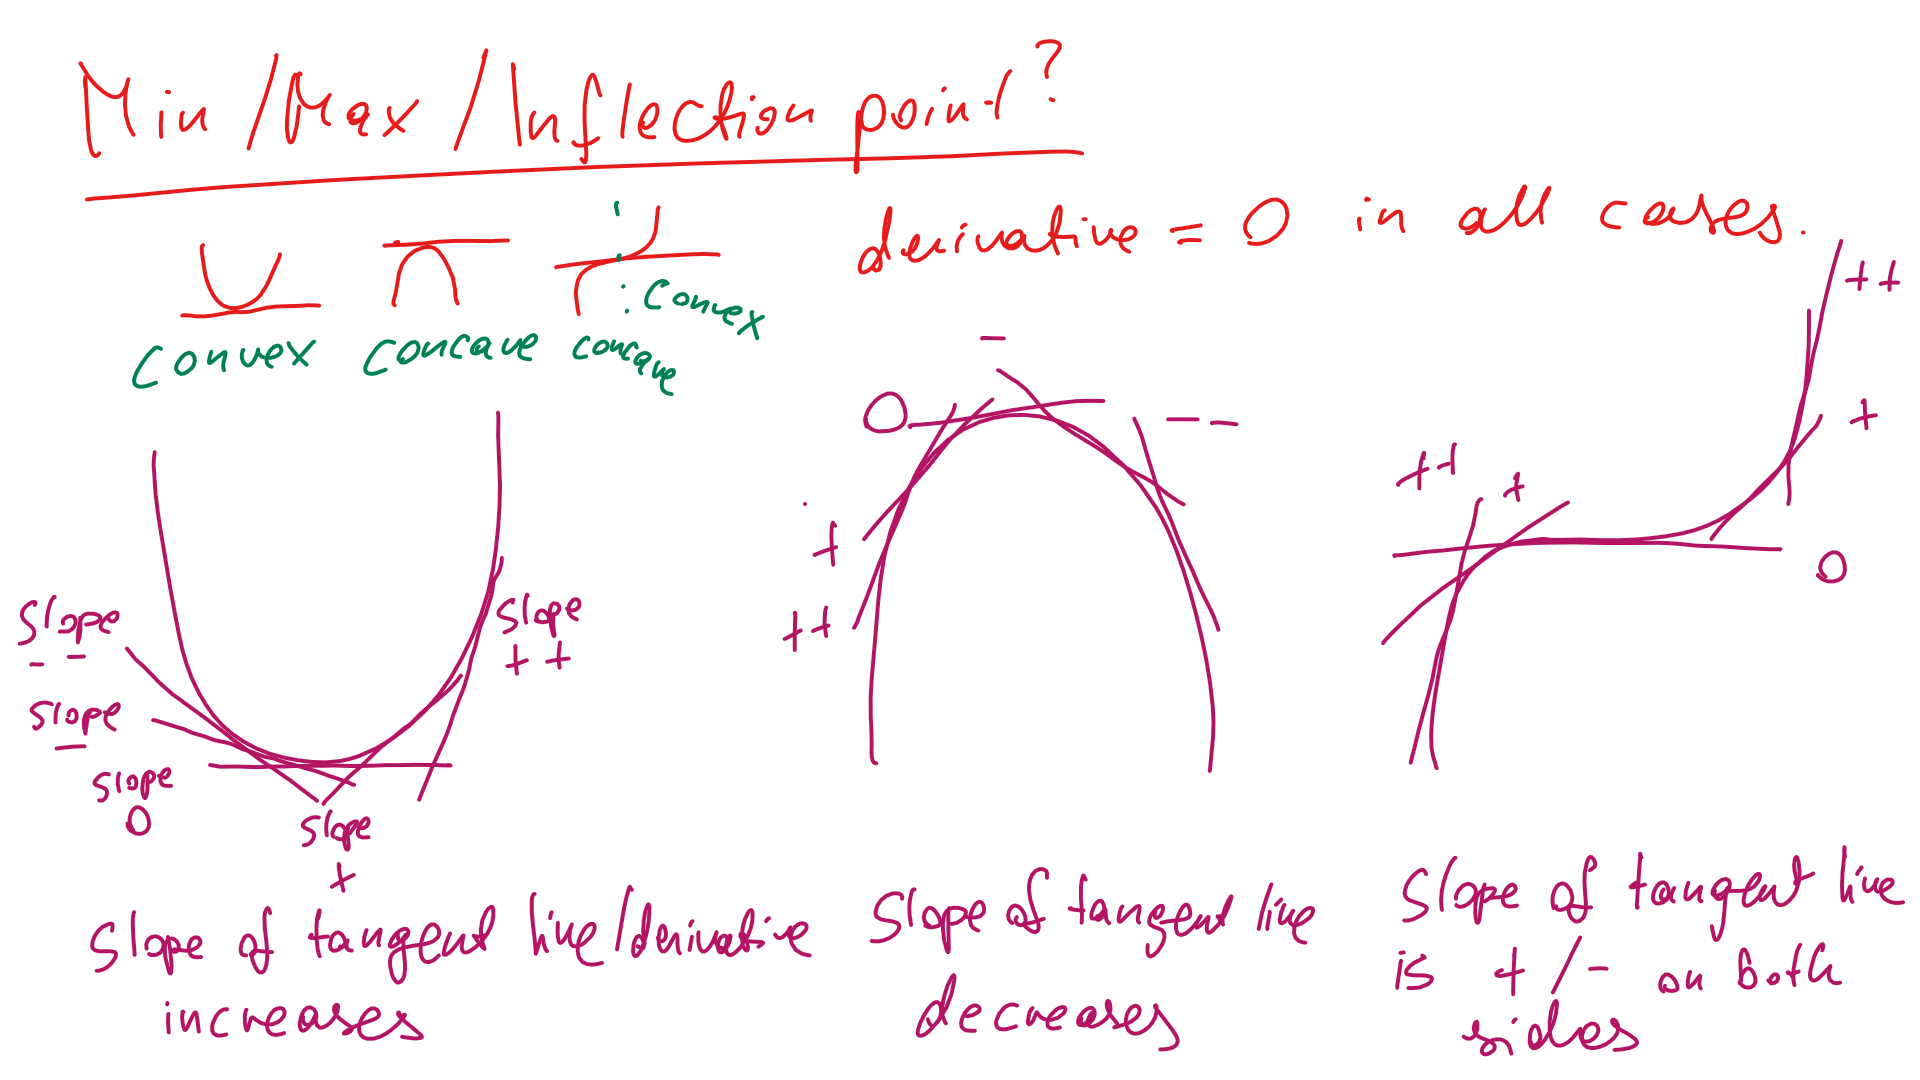 Min / Max / Inflection point?
derivative = 0 in all cases.
convex
concave
concave
: convex
slope
- -
slope
-
slope
0
slope
+
slope
+ +
Slope of tangent line/derivative
increases
0
-
- -
+
++
Slope of tangent line
decreases
++
+
++
+
0
Slope of tangent line
is + / - on both
sides